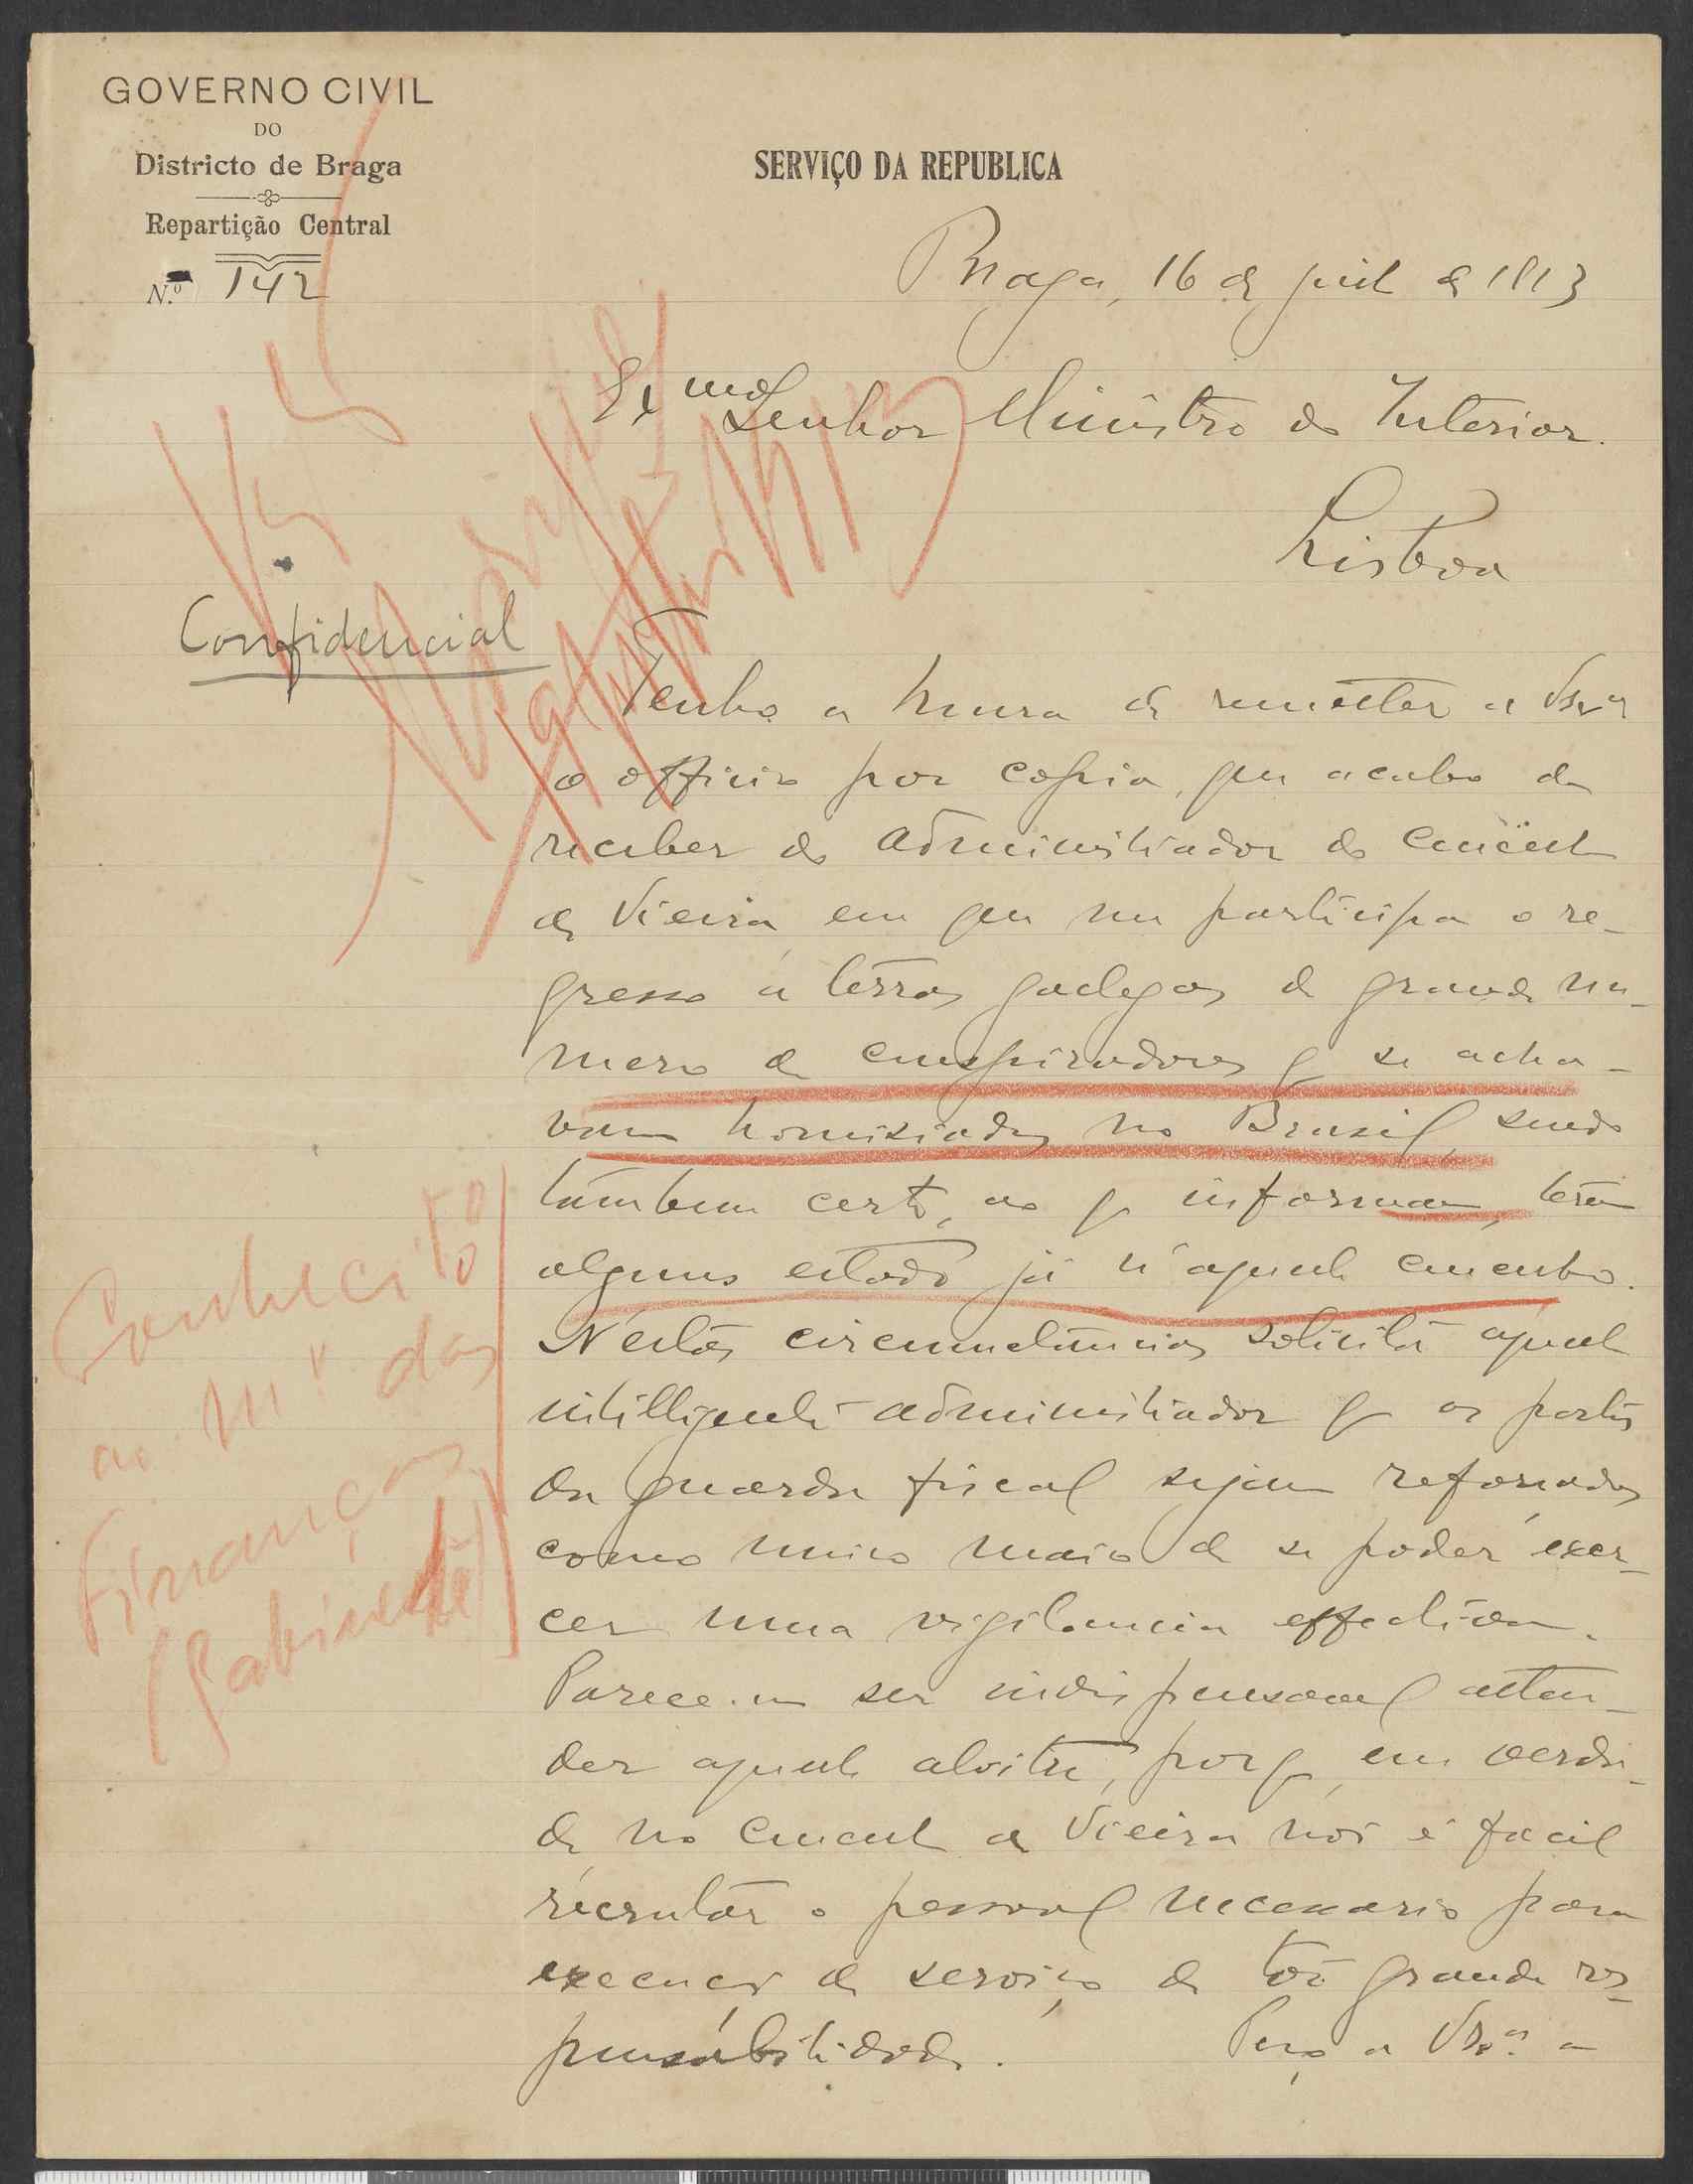 GOVERNO CIVIL
DO
Districto de Braga
Repartição Central
N.º 142
SERVIÇO DA REPUBLICA
Braga, 16 de de 1913
Exmo Senhor Ministro do Interior.
Lisboa
Confidencial
Tenho a honra de remetter a V Exa
o officio por copia, que acabo de
receber do administrador do concelho
de Vieira, em que me participa o re-
gresso a terras galegas de grande nu-
mero de conspiradores q se acha-
vam homisiados no Brasil, sendo
tambem certo, ao q informam, terem
alguns estado já n'aquele concelho.
N'estas circumstancias solicita aquele
intilligente administrador q os postos
da guarda fiscal sejam reforçados
como unico meio de se poder exer-
cer uma vigilancia effectiva.
Parece-me ser indispensavel atten-
der aquele alvitre, porq, em verda-
de no concelho de Vieira não é facil
recrutar o pessoal necessario para
execução de serviço de tão grande res-
ponsabilidade. Peço a V Exa a
Conhecito
ao Mº das
Finanças
(Gabinete)